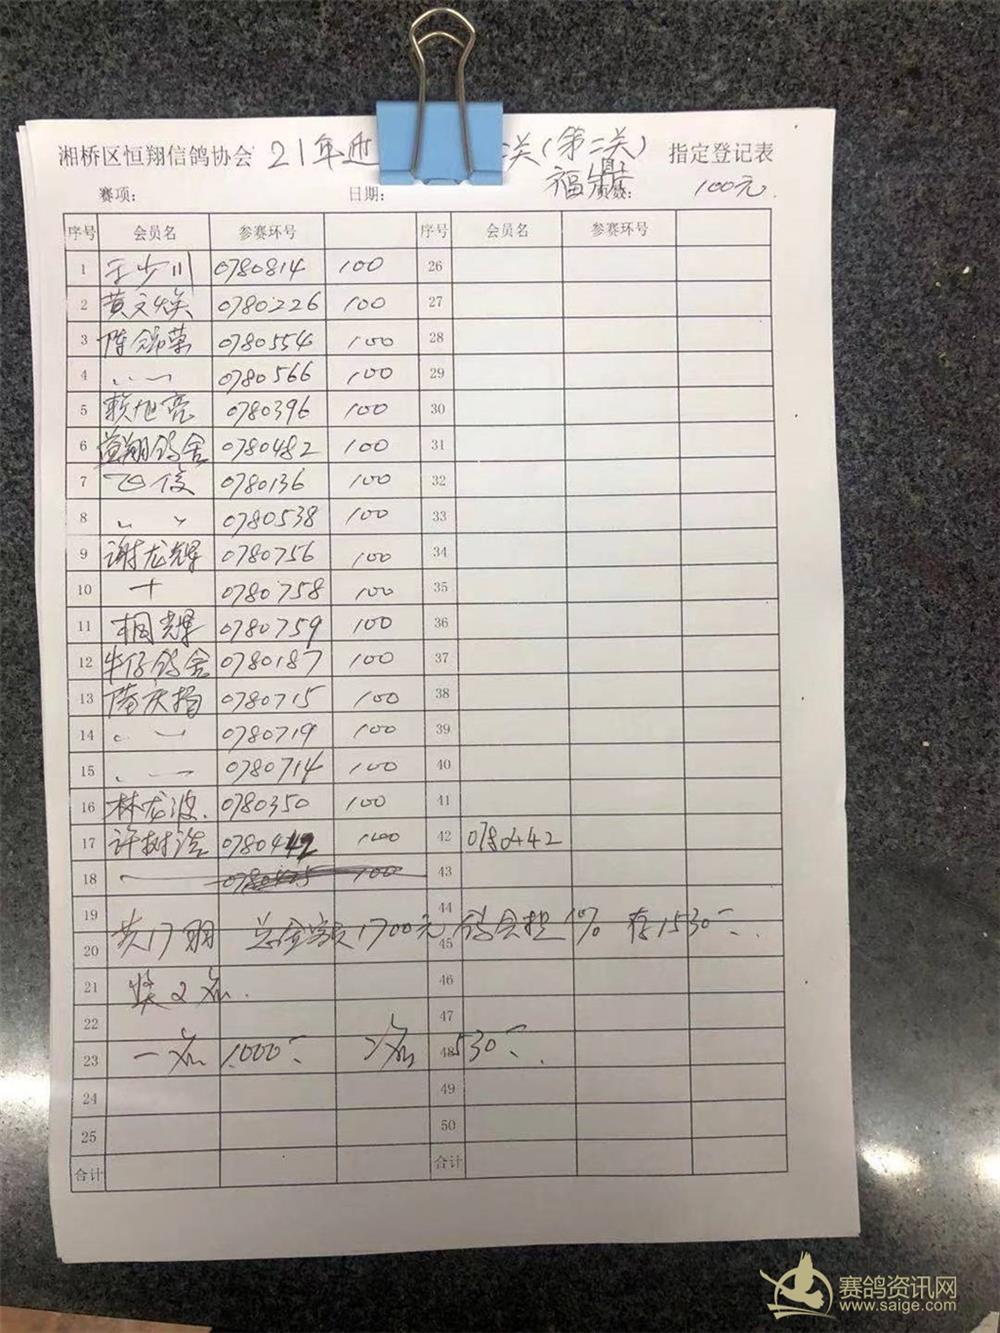 湘桥区恒翔信鸽协会 21年 关(第二关) 指定登记表
赛项: 日期: 福鼎 页数: 100元.
序号 会员名 参赛环号 序号 会员名 参赛环号
1 王少川 0780814 100 26
2 黄文焕 0780226 100 27
3 陈 荣 0780554 100 28
4 〃 0780566 100 29
5 赖旭亮 0780396 100 30
6 翔鸽舍 0780482 100 31
7 俊 0780136 100 32
8 〃 0780538 100 33
9 谢龙辉 0780756 100 34
10 0780758 100 35
11 辉 0780759 100 36
12 牛仔鸽舍 0780187 100 37
13 庆 0780715 100 38
14 〃 0780719 100 39
15 〃 0780714 100 40
16 林龙波. 0780350 100 41
17 许树浩 0780442 100 42 0780442
18 100 43
19 44
20 共17羽 总金额1700元 45 存1530
21 奖2名. 46
22 47
23 一名 1000 2名 48 530
24 49
25 50
合计 合计
赛鸽资讯网
www.saige.com